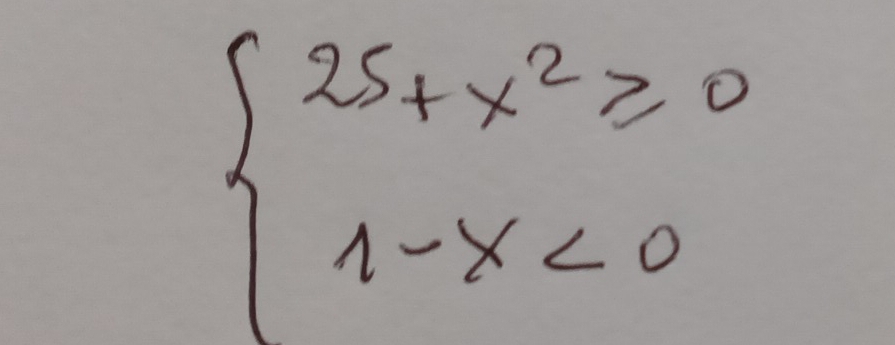 25+x²≥0
1-x<0